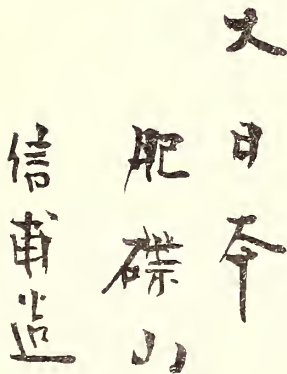 大日本
肥碟山
信甫造